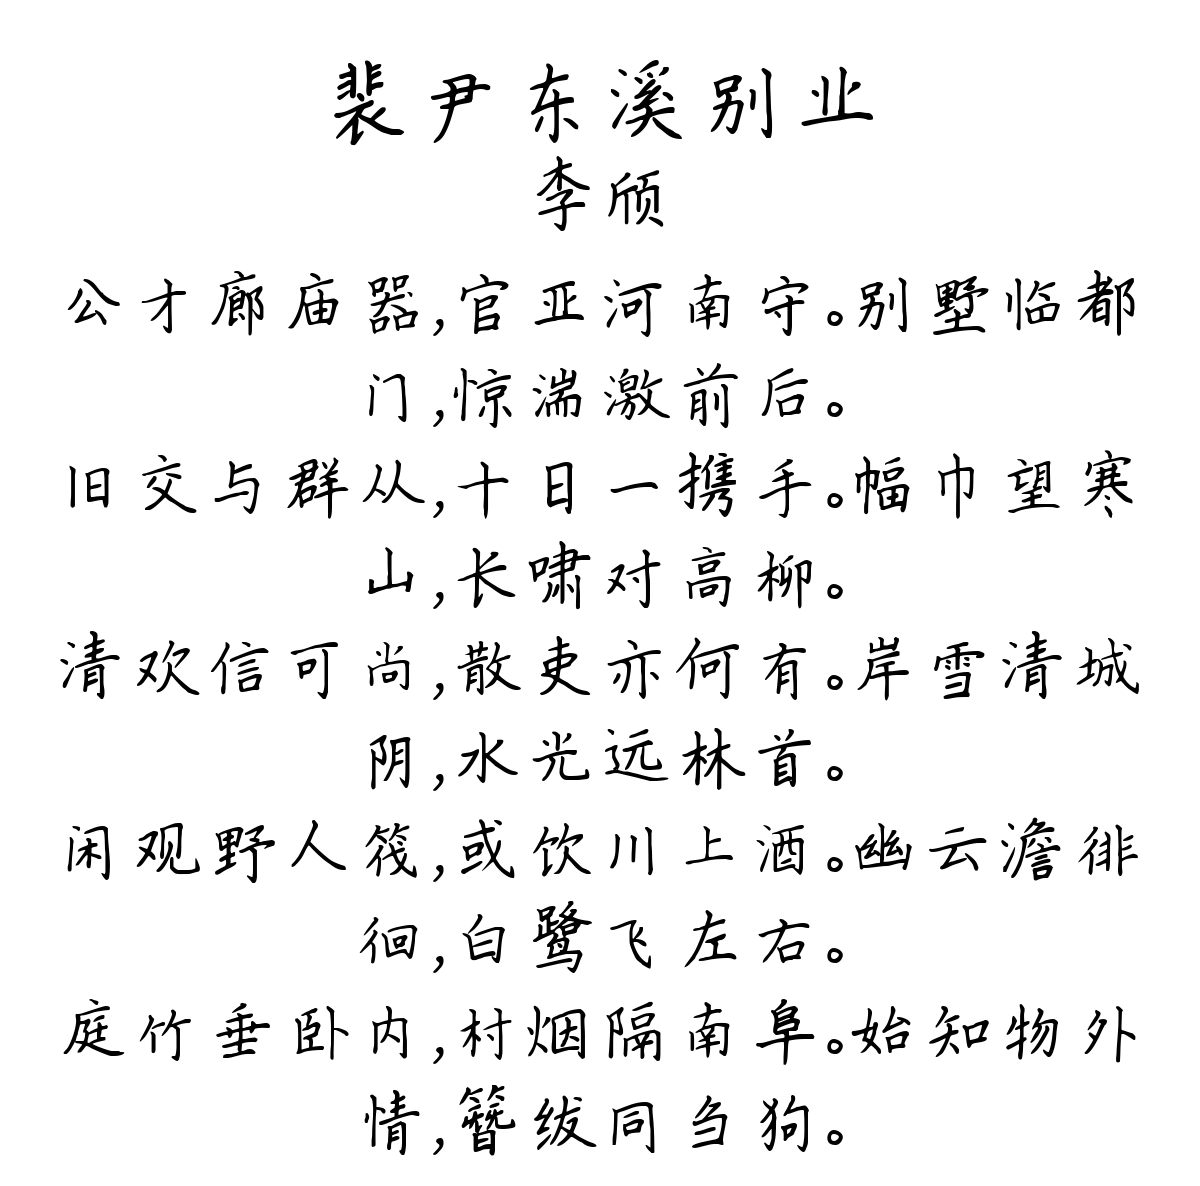 裴尹东溪别业
李颀
公才廊庙器,官亚河南守。别墅临都
门,惊湍激前后。
旧交与群从,十日一携手。幅巾望寒
山,长啸对高柳。
清欢信可尚,散吏亦何有。岸雪清城
阴,水光远林首。
闲观野人筏,或饮川上酒。幽云澹徘
徊,白鹭飞左右。
庭竹垂卧内,村烟隔南阜。始知物外
情,簪绂同刍狗。